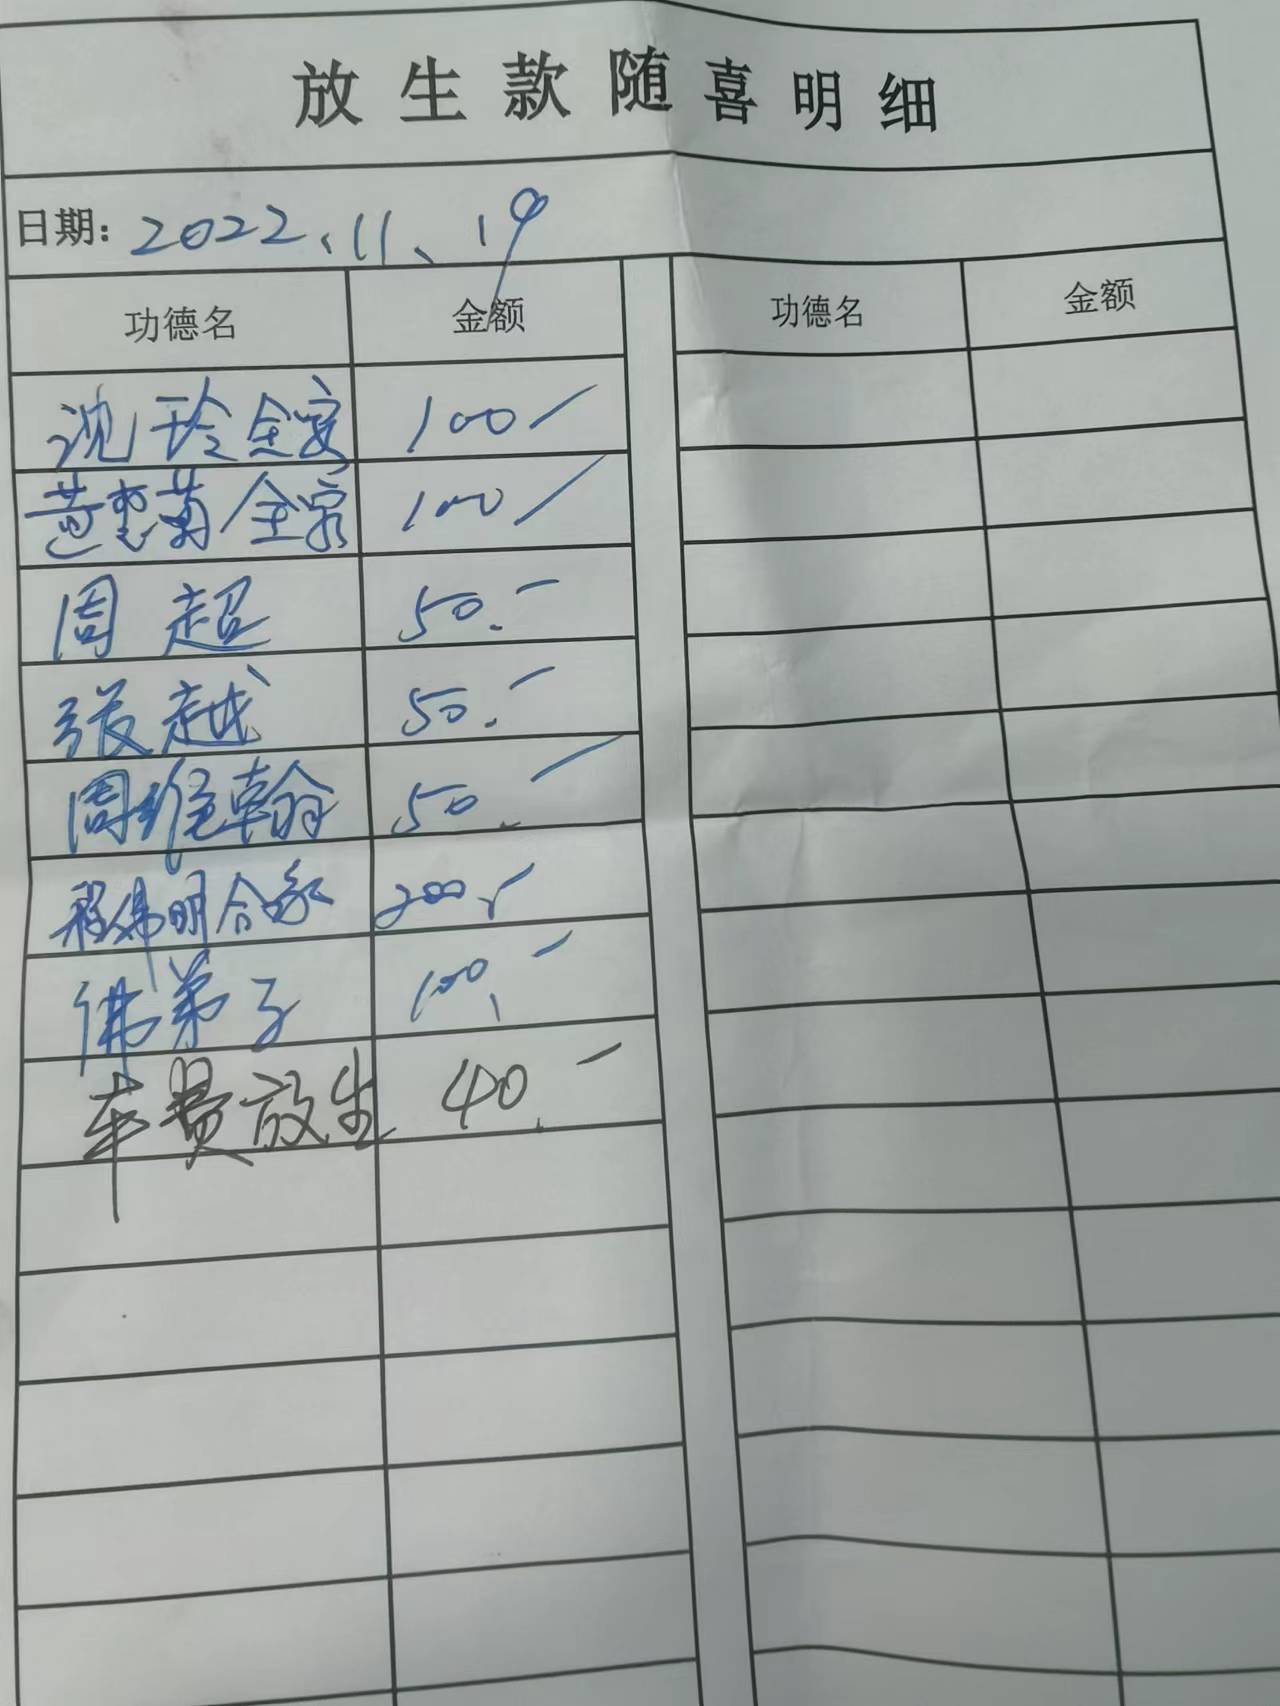 放生款随喜明细
日期: 2022.11.19
功德名 金额 功德名 金额
沈玲全家 100/
黄惠菊全家 100/
周超 50.-
张越 50.-
周维翰 50.-
程伟明合家 200.-
佛弟子 100.-
车费放生 40.-